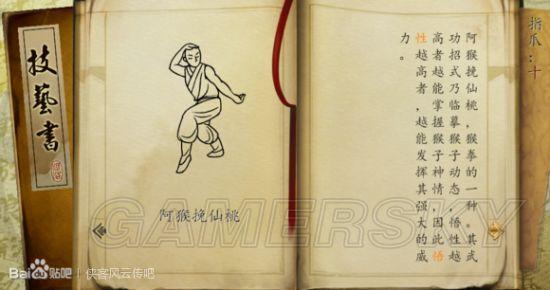 指爪：十
阿猴挽仙桃，猴拳的一种。其武
功招式乃临摹猴子动态，悟性越
高者越能掌握猴子神情，因此悟
性越高者，越能发挥其强大的威
力。
技藝書
阿猴挽仙桃
GAMERSKY
Bai贴吧 | 侠客风云传吧